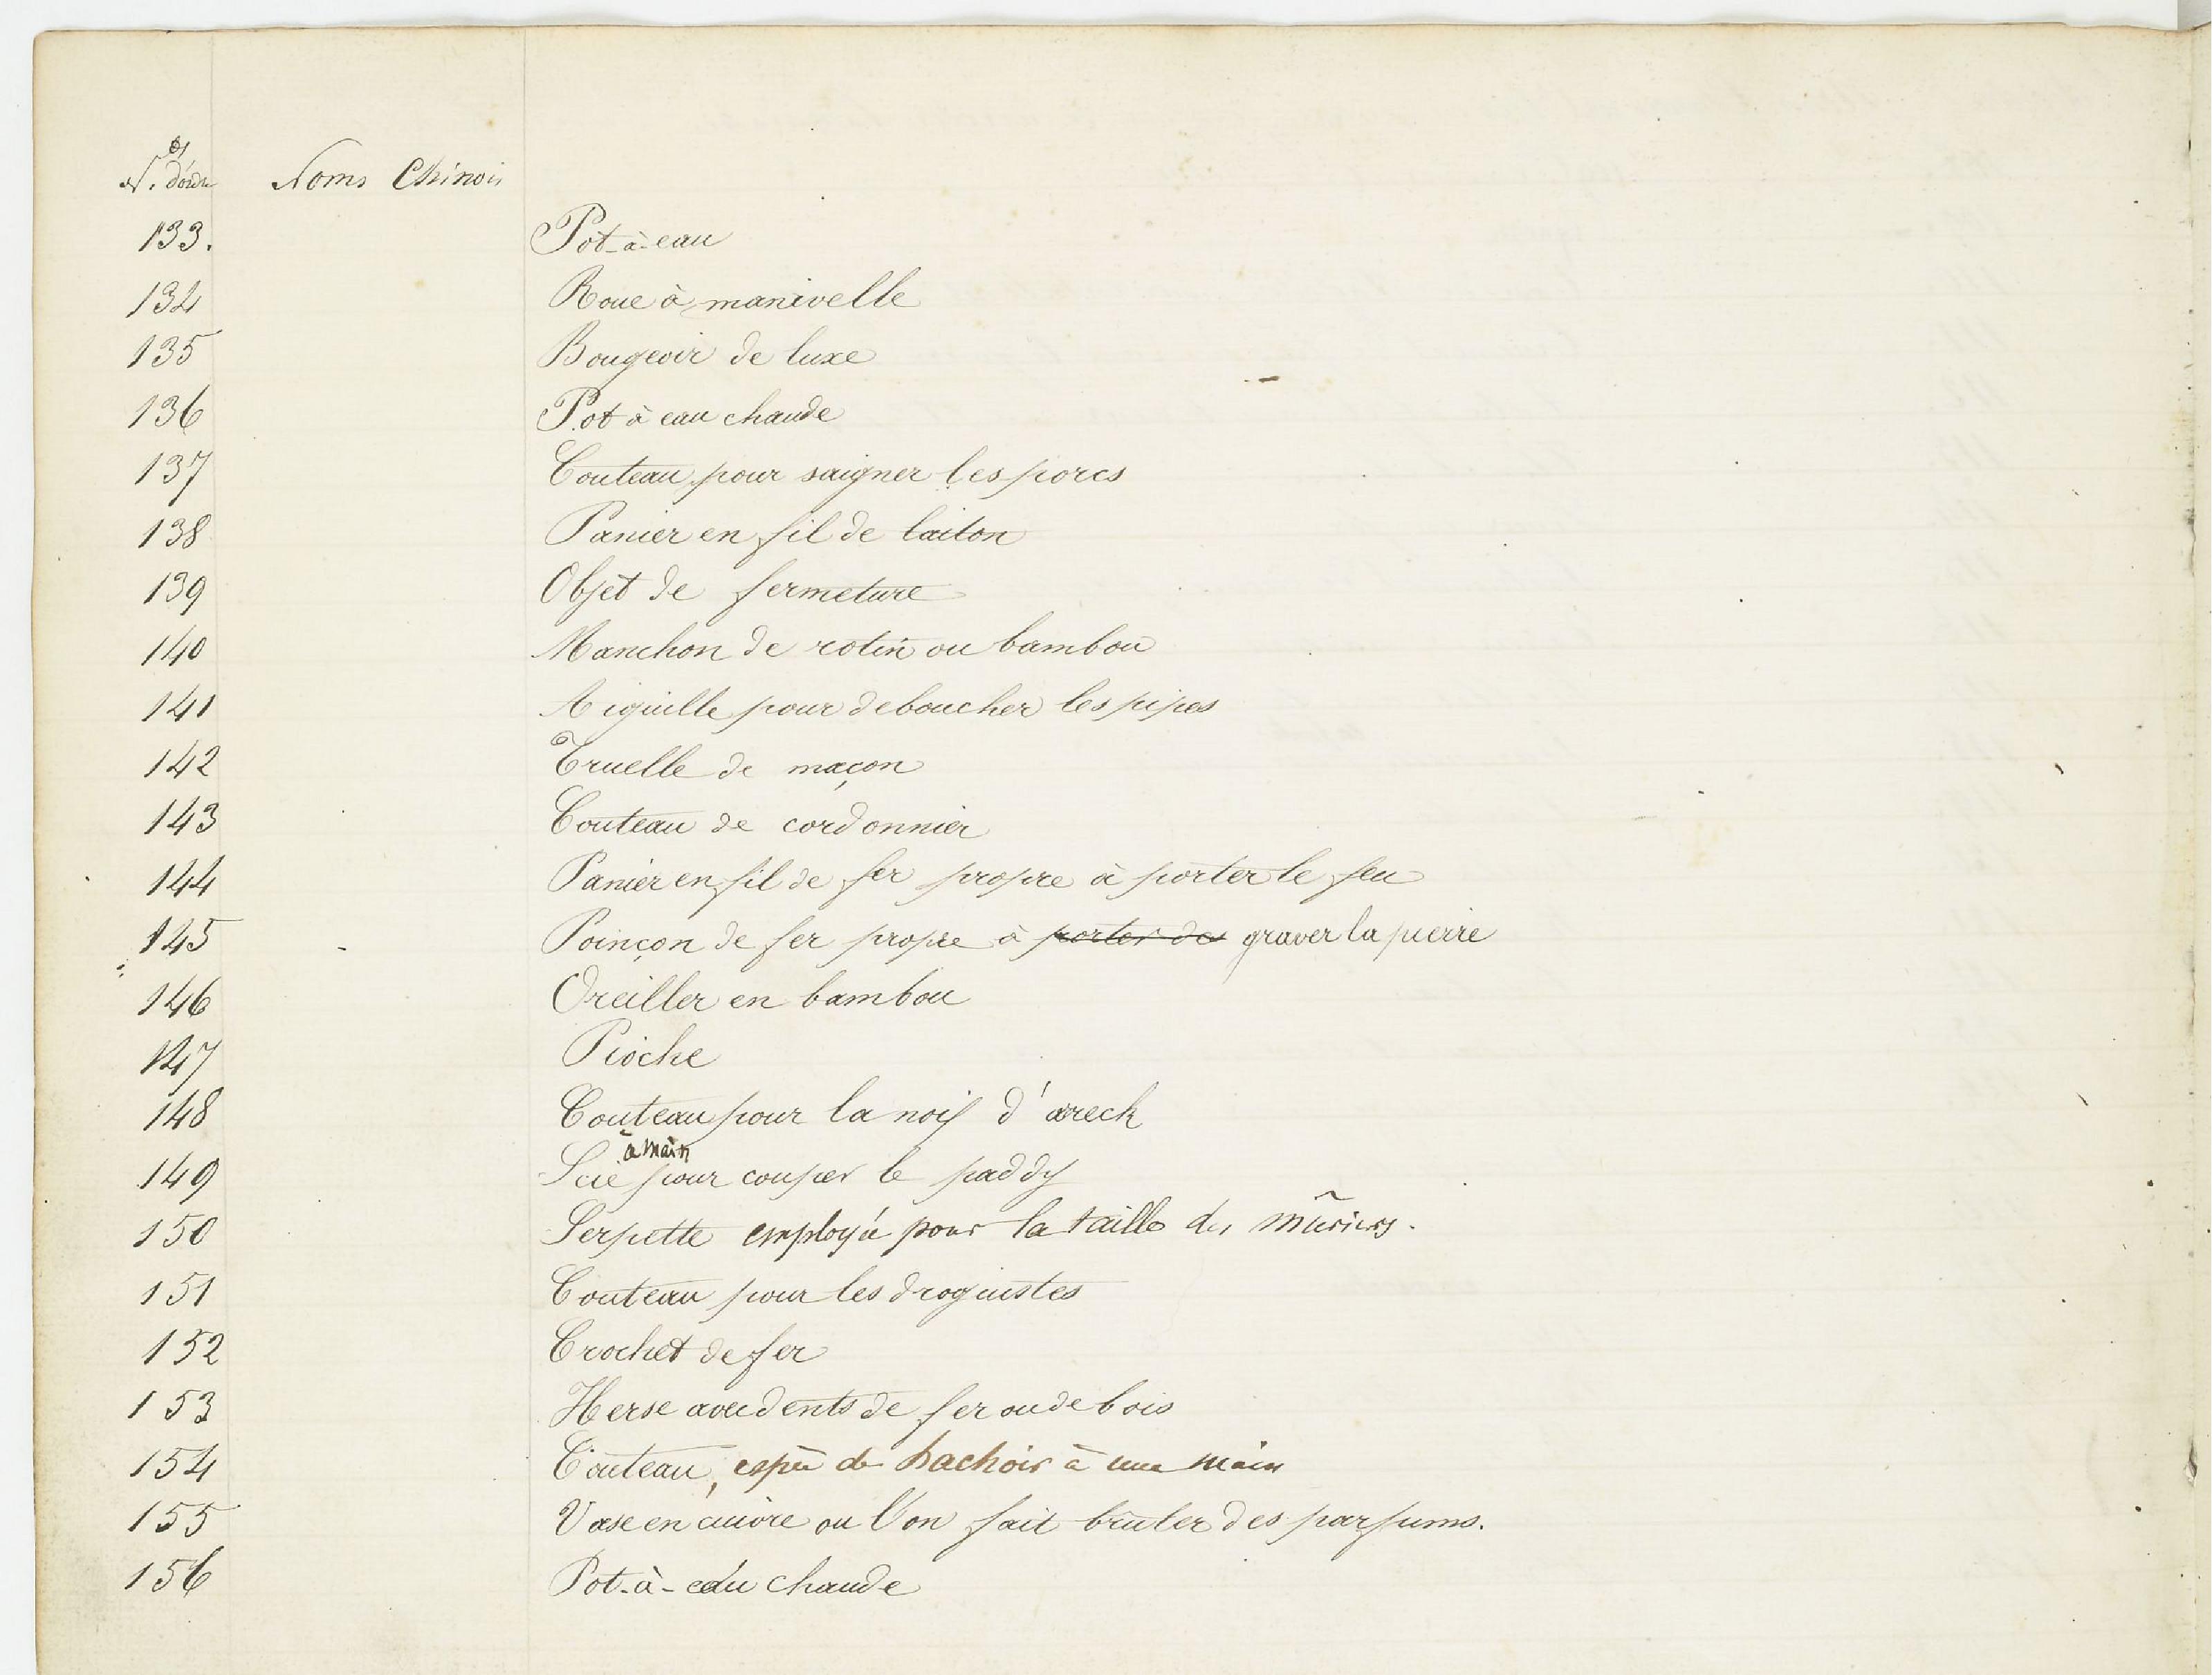 Nos d'ordre Noms Chinois
133. Pot-à-eau
134 Roue à manivelle
135 Bougeoir de luxe
136 Pot à eau chaude
137 Couteau pour saigner les porcs
138 Panier en fil de laiton
139 Objet de fermeture
140 Manchon de rotin ou bambou
141 Aiguille pour deboucher les pipes
142 Truelle de maçon
143 Couteau de cordonnier
144 Panier en fil de fer propre à porter le feu
145 Poinçon de fer propre à porter des graver la pierre
146 Oreiller en bambou
147 Pioche
148 Couteau pour la noix d'areck
149 Scie à main pour couper le paddy
150 Serpette employée pour la taille des mûriers.
151 Couteau pour les droguistes
152 Crochet de fer
153 Herse avec dents de fer ou de bois
154 Couteau, espèce de hachoir à une main
155 Vase en cuivre ou l'on fait brûler des parfums.
156 Pot-à-eau chaude